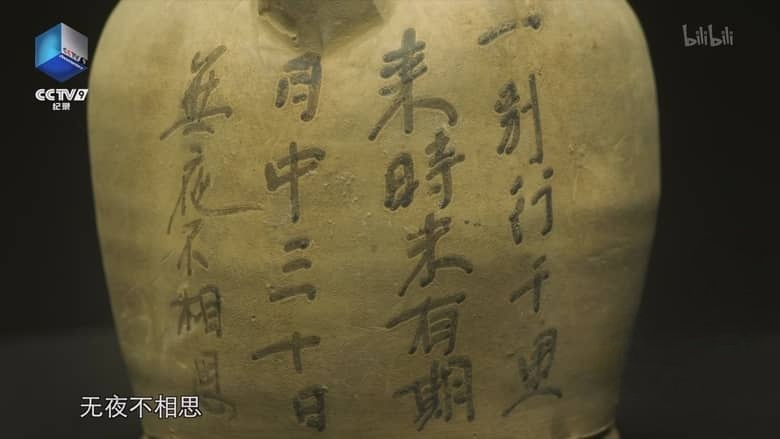 CCTV9
纪录
bilibili
一别行千里
来時未有期
月中三十日
無夜不相思
无夜不相思